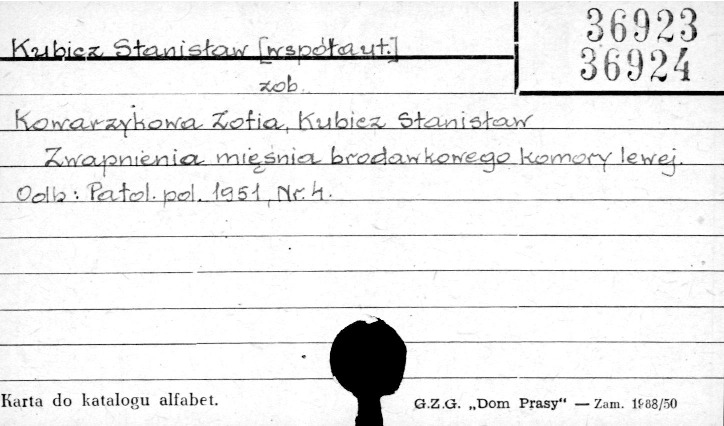 36923
36924
Kubicz Stanisław [współaut.]
zob.
Kowarzykowa Zofia, Kubicz Stanisław
Zwapnienia mięśnia brodawkowego komory lewej.
Odb: Patol. pol. 1951, Nr. 4.
Karta do katalogu alfabet.
G.Z.G. „Dom Prasy“ — Zam. 1988/50